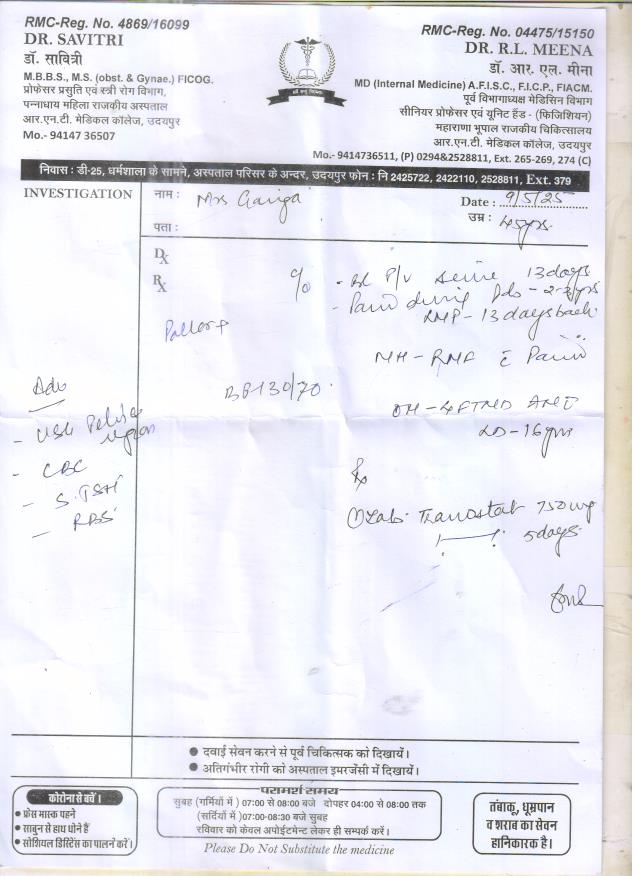 RMC-Reg. No. 4869/16099
DR. SAVITRI
डॉ. सावित्री
M.B.B.S., M.S. (obst. & Gynae.) FICOG.
प्रोफेसर प्रसुति एवं स्त्री रोग विभाग,
पन्नाधाय महिला राजकीय अस्पताल
आर.एन.टी. मेडिकल कॉलेज, उदयपुर
Mo.- 94147 36507
RMC-Reg. No. 04475/15150
DR. R.L. MEENA
डॉ. आर. एल. मीना
MD (Internal Medicine) A.F.I.S.C., F.I.C.P., FIACM.
पूर्व विभागाध्यक्ष मेडिसिन विभाग
सीनियर प्रोफेसर एवं यूनिट हैंड - (फिजिशियन)
महाराणा भूपाल राजकीय चिकित्सालय
आर.एन.टी. मेडिकल कॉलेज, उदयपुर
Mo.- 9414736511, (P) 0294&2528811, Ext. 265-269, 274 (C)
निवास : डी-25, धर्मशाला के सामने, अस्पताल परिसर के अन्दर, उदयपुर फोन : नि 2425722, 2422110, 2528811, Ext. 379
INVESTIGATION
नाम : Mrs Ganga
Date : 9/5/25
उम्र : 45yrs.
पता :
Dx
Rx
c/o - Bl P/V since 13 days
- Pain during Pds - 2-3 yrs
LMP - 13 days back
Pallor +
MH - RMF c Pain
BP 130/70.
OH - 4FTND
LD - 16 yrs
Adv
- USG Pelvic region
- CBC
- S. TSH
- RBS
Rx
① Tab. Tranostat 750 mg
5 days
● दवाई सेवन करने से पूर्व चिकित्सक को दिखायें।
● अतिगंभीर रोगी को अस्पताल इमरजेंसी में दिखायें।
कोरोना से बचें ।
● फ्रेस मास्क पहने
● साबुन से हाथ धोने हैं
● सोशियल डिस्टिेंस का पालने करें।
परामर्श समय
सुबह (गर्मियों में ) 07:00 से 08:00 बजे दोपहर 04:00 से 08:00 तक
(सर्दियों में ) 07:00-08:30 बजे सुबह
रविवार को केवल अपोईटमेन्ट लेकर ही सम्पर्क करें।
Please Do Not Substitute the medicine
तंबाकू, धूम्रपान
व शराब का सेवन
हानिकारक है।